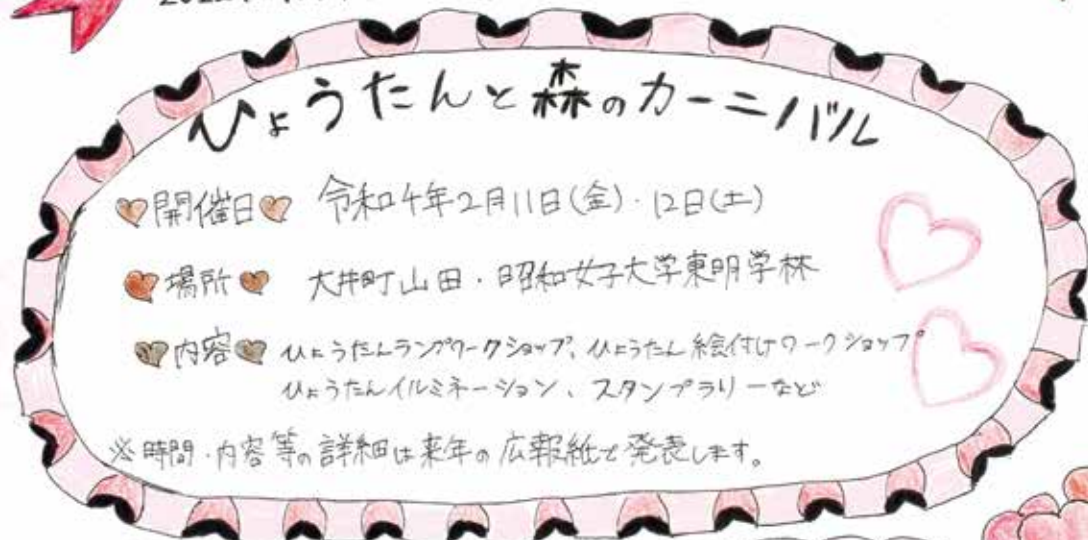 ひょうたんと森のカーニバル
開催日 令和4年2月11日(金)・12日(土)
場所 大井町山田・昭和女子大学東明学林
内容 ひょうたんランプワークショップ、ひょうたん絵付けワークショップ
ひょうたんイルミネーション、スタンプラリーなど
※時間・内容等の詳細は来年の広報紙で発表します。